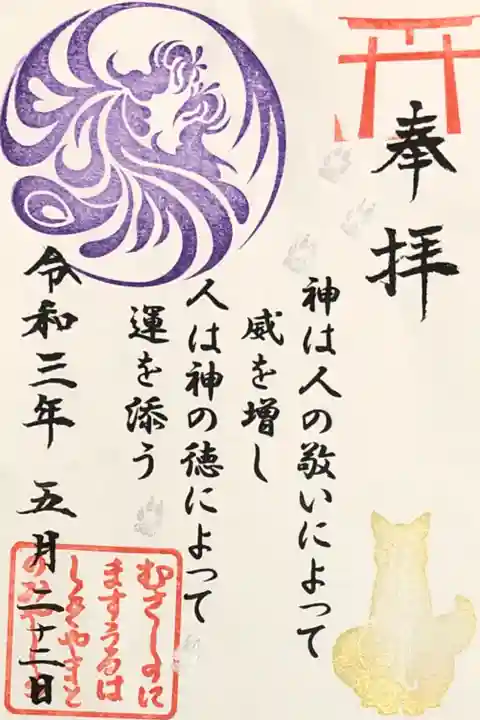 奉拝
神は人の敬いによって
威を増し
人は神の徳によって
運を添う
令和三年 五月二十三日
むさしのに
ますうるは
しきやまと